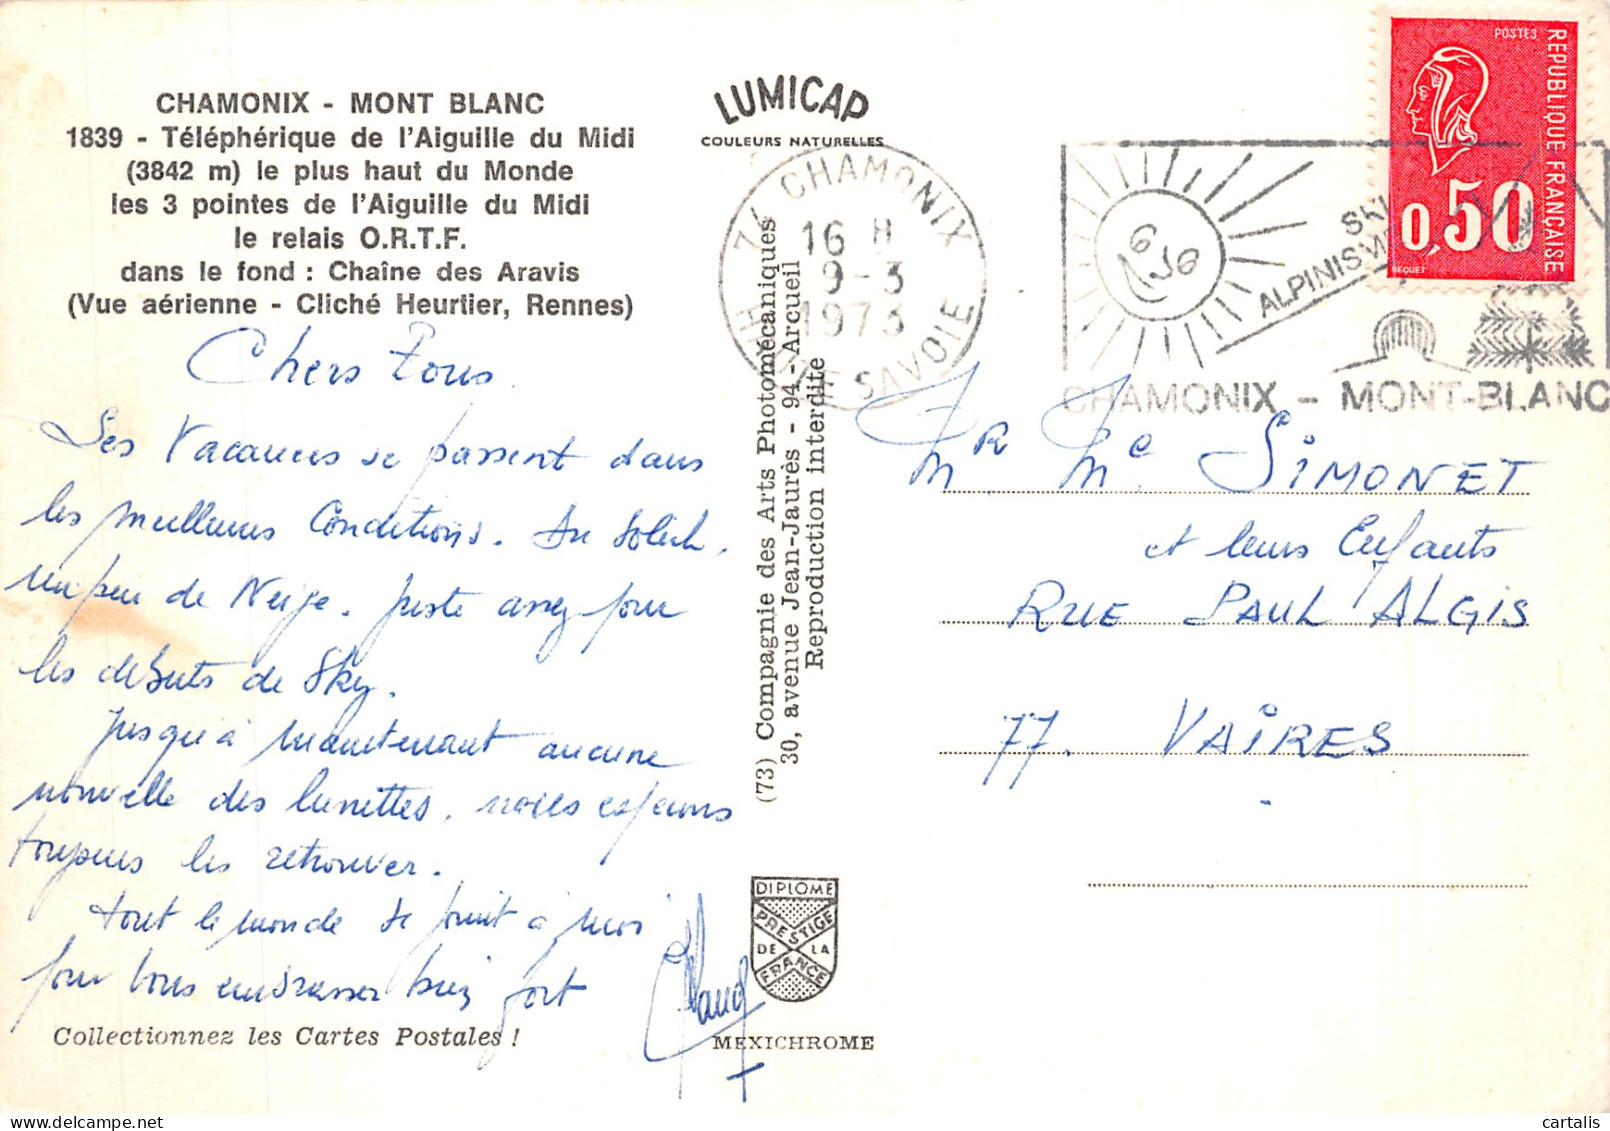 CHAMONIX - MONT BLANC
1839 - Téléphérique de l'Aiguille du Midi
(3842 m) le plus haut du Monde
les 3 pointes de l'Aiguille du Midi
le relais O.R.T.F.
dans le fond : Chaîne des Aravis
(Vue aérienne - Cliché Heurtier, Rennes)
Chers Tous
Les Vacances se passent dans
les meilleures Conditions. Du Soleil,
un peu de Neige. Juste assez pour
les debuts de Sky.
Jusqu'à maintenant aucune
nouvelle des lunettes, nous esperons
toujours les retrouver.
tout le monde se joint à moi
pour vous embrasser bien fort
Collectionnez les Cartes Postales !
LUMICAP
COULEURS NATURELLES
74 CHAMONIX
16 H
9-3
1973
HAUTE SAVOIE
(73) Compagnie des Arts Photomécaniques
30, avenue Jean-Jaurès - 94 - Arcueil
Reproduction interdite
DIPLOME
PRESTIGE
DE LA
FRANCE
MEXICHROME
SKI
ALPINISME
CHAMONIX - MONT-BLANC
POSTES
REPUBLIQUE FRANÇAISE
0,50
BEQUET
Mr Me SIMONET
et leurs Enfants
RUE PAUL ALGIS
77. VAIRES
delcampe.net
cartalis